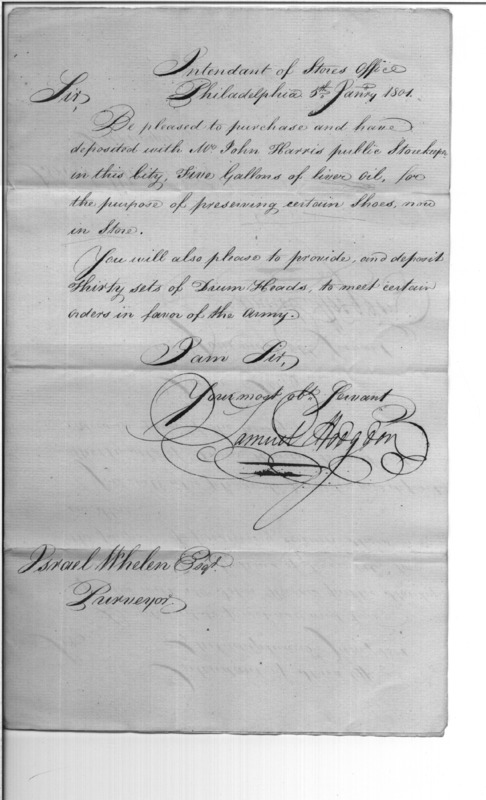 Intendant of Stores Office
Philadelphia 8th Janry 1801.
Sir,
Be pleased to purchase and have
deposited with Mr John Harris public Storekeeper
in this City, Five Gallons of liver Oil, for
the purpose of preserving certain Shoes, now
in Store.
You will also please to provide, and deposit
Thirty sets of Drum Heads, to meet certain
orders in favor of the Army.
I am Sir,
Your most obt. Servant
Samuel Hodgdon
Israel Whelen Esqr.
Purveyor.